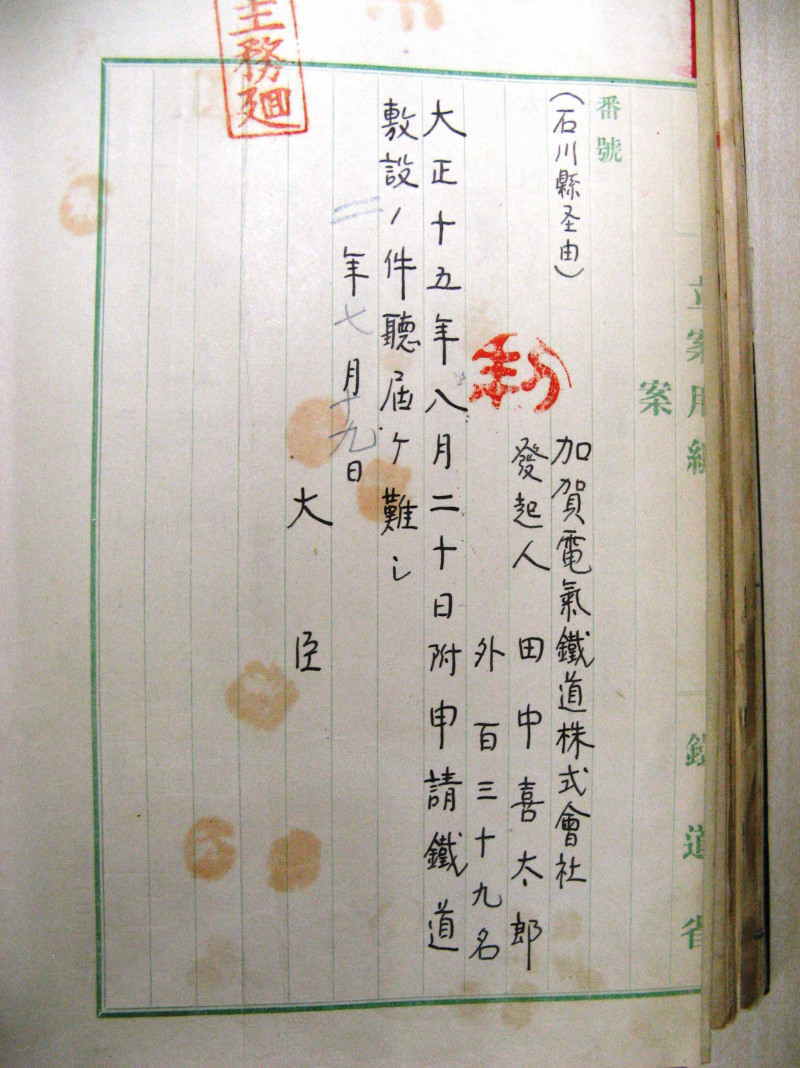 立案用紙
鐵道省
案
番號
(石川縣圣由)
加賀電氣鐵道株式會社
發起人 田中喜太郎
外百三十九名
大正十五年八月二十日附申請鐵道
敷設ノ件聽届ケ難シ
二年七月十九日
大臣
主務廻